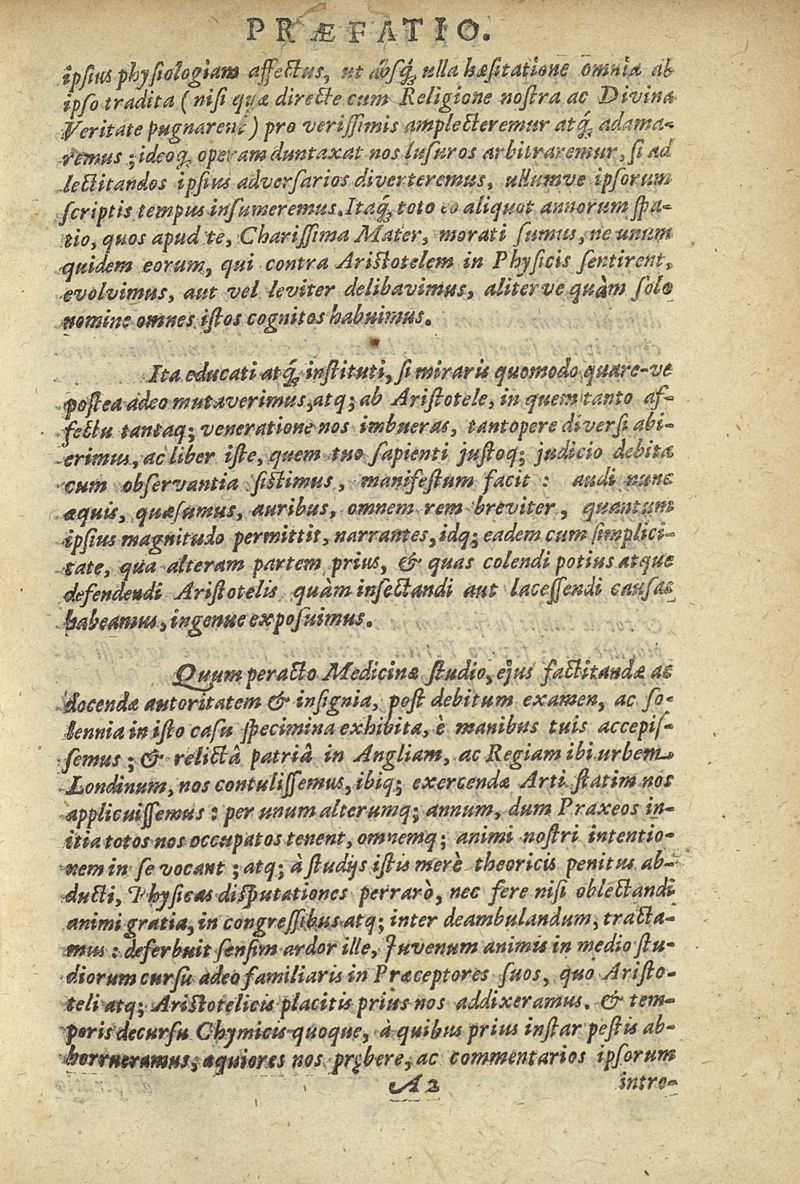 PRÆFATIO.
ipsius physiologiam affectus, ut absq; ulla hæsitatione omnia ab
ipso tradita (nisi quæ directe cum Religione nostra ac Divina
Veritate pugnarent) pro verissimis amplecteremur atq; adama-
remus; ideoq; operam duntaxat nos lusuros arbitraremur, si ad
lectitandos ipsius adversarios diverteremus, ullumve ipsorum
scriptis tempus insumeremus. Itaq; toto eo aliquot annorum spa-
tio, quos apud te, Charissima Mater, morati sumus, ne unum
quidem eorum, qui contra Aristotelem in Physicis sentirent,
evolvimus, aut vel leviter delibavimus, aliterve quàm solo
nomine omnes istos cognitos habuimus.
Ita educati atq; instituti, si miraris quomodo quare-ve
postea adeo mutaverimus, atq; ab Aristotele, in quem tanto af-
fectu tantaq; veneratione nos imbueras, tantopere diversi abi-
erimus, ac liber iste, quem tuo sapienti justoq; judicio debita
cum observantia sistimus, manifestum facit: audi nunc
æquis, quæsumus, auribus, omnem rem breviter, quantum
ipsius magnitudo permittit, narrantes, idq; eadem cum simplici-
tate, qua alteram partem prius, & quas colendi potius atque
defendendi Aristotelis quàm insectandi aut lacessendi causas
habeamus, ingenue exposuimus.
Quum peracto Medicinæ studio, ejus factitandæ ac
docendæ autoritatem & insignia, post debitum examen, ac so-
lennia in isto casu specimina exhibita, è manibus tuis accepis-
semus; & relictâ patriâ in Angliam, ac Regiam ibi urbem
Londinum, nos contulissemus, ibiq; exercendæ Arti statim nos
applicuissemus: per unum alterumq; annum, dum Praxeos in-
itia totos nos occupatos tenent, omnemq; animi nostri intentio-
nem in se vocant; atq; à studijs istis merè theoricis penitus ab-
ducti, Physicas disputationes perrarò, nec fere nisi oblectandi
animi gratia, in congressibus atq; inter deambulandum, tracta-
mus: deferbuit sensim ardor ille, Juvenum animis in medio stu-
diorum cursu adeo familiaris in Præceptores suos, quo Aristo-
teli atq; Aristotelicis placitis prius nos addixeramus. & tem-
poris decursu Chymicis quoque, à quibus prius instar pestis ab-
horrueramus, æquiores nos prębere, ac commentarios ipsorum
A2
intro-